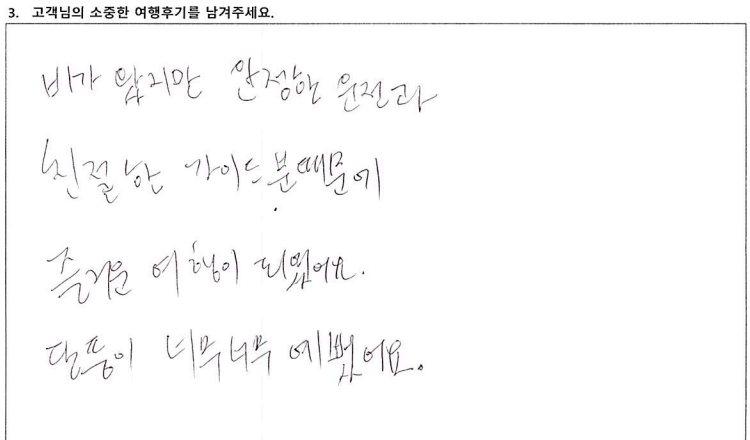 3. 고객님의 소중한 여행후기를 남겨주세요.
비가 왔지만 안정한 운전과
친절한 가이드분때문에
즐거운 여행이 되었어요.
단풍이 너무너무 예뻤어요.